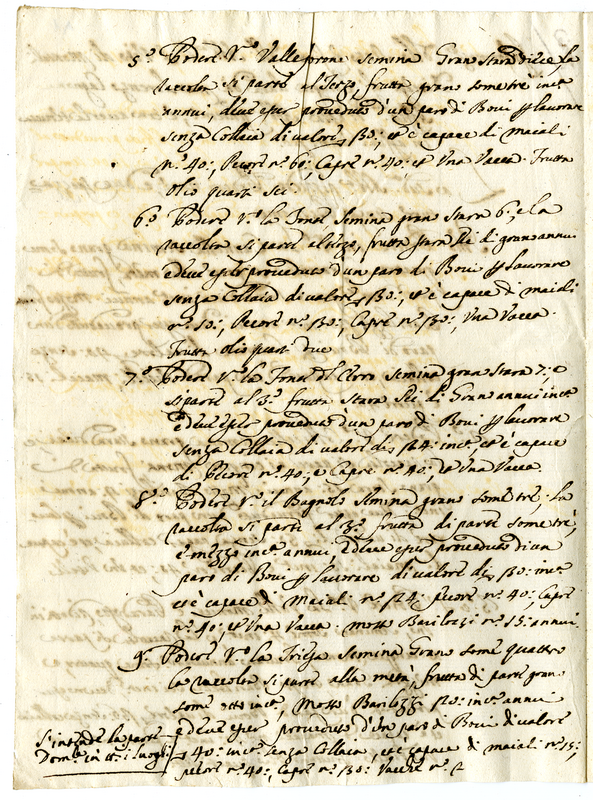 5.o Podere V.o Valleprone semina Gran Stara dieci la
raccolta si parte al Terzo, frutta grano some trè inc.a
annui, deve esser proveduto d'un paro di Bovi p lavorare
senza Collaia di valore 30:, et è capace di maiali
n.o 40:, Pecore n.o 60:, Capre n.o 40:, et Una Vacca. Frutta
olio quarti sei.
6.o Podere V.o la Fonte semina gran Stara 6:, e la
raccolta si parte al terzo, frutta stara sei di grano annui
e deve esser proveduto d'un paro di Bovi p lavorare
senza Collaia di valore 30:, et è capace di maiali
n.o 50:, Pecore n.o 30:, Capre n.o 30:, Una Vacca.
Frutta olio quarti due
7.o Podere V.o la Fonte del Cerro semina gran Stara 7: e
si parte al 3.o frutta Stara sei di Grano annui inc.a
e deve esser proveduto d'un paro di Bovi p lavorare
senza Collaia di valore di 24: inc.a, et è capace
di Pecore n.o 40:, e Capre n.o 40:, et Una Vacca.
8.o Podere V.o il Bagnolo semina grano some trè, La
raccolta si parte al 3.o frutta di parte some trè,
e mezzo inc.a annui, e deve esser proveduto di un
paro di Bovi p lavorare di valore di 30: inc.a
et è capace di Maiali n.o 24: pecore n.o 40:, Capre
n.o 40:, et Una Vacca. mosto Barilozzi n.o 15: annui.
9.o Podere V.o la Triega semina Grano some quattro
la raccolta si parte alla metà, frutta di parte grano
some otto inc.a, Mosto Barilozzi 20: inc.a annui
e deve esser proveduto d'Un paro di Bovi di valore
40: inc.a senza Collaia, et è capace di maiali n.o 15:
pecore n.o 40:, Capre n.o 30: Vacche n.o 2
S'intende la parte
Dom.le in tt.i i luoghi